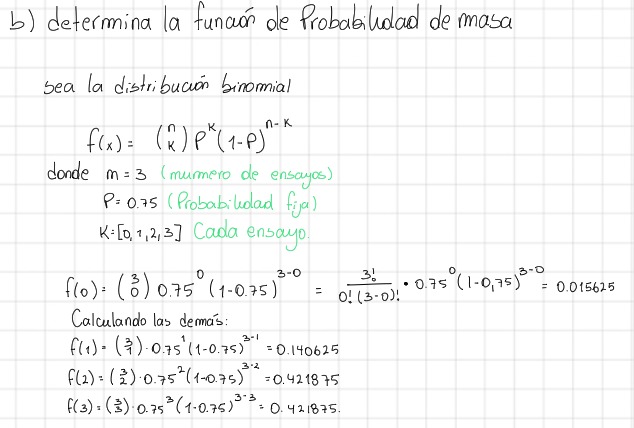 b) determina la función de Probabilidad de masa
sea la distribución binomial
f(x) = (n k) P^k (1-P)^n-k
donde n = 3 (número de ensayos)
P = 0.75 (Probabilidad fija)
K = [0, 1, 2, 3] Cada ensayo.
f(0) = (3 0) 0.75^0 (1-0.75)^3-0 = 3! / 0! (3-0)! • 0.75^0 (1-0,75)^3-0 = 0.015625
Calculando las demás:
f(1) = (3 1) · 0.75^1 (1-0.75)^3-1 = 0.140625
f(2) = (3 2) · 0.75^2 (1-0.75)^3-2 = 0.421875
f(3) = (3 3) · 0.75^3 (1-0.75)^3-3 = 0.421875.